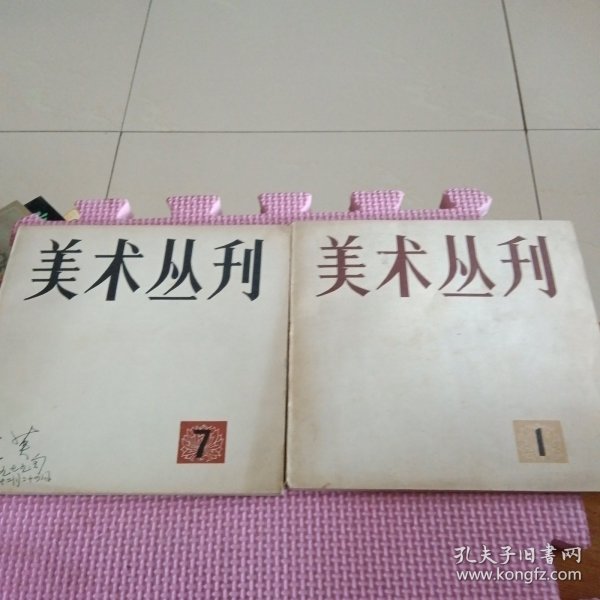 美术丛刊
7
美术丛刊
1
孔夫子旧書网
www.kongfz.com